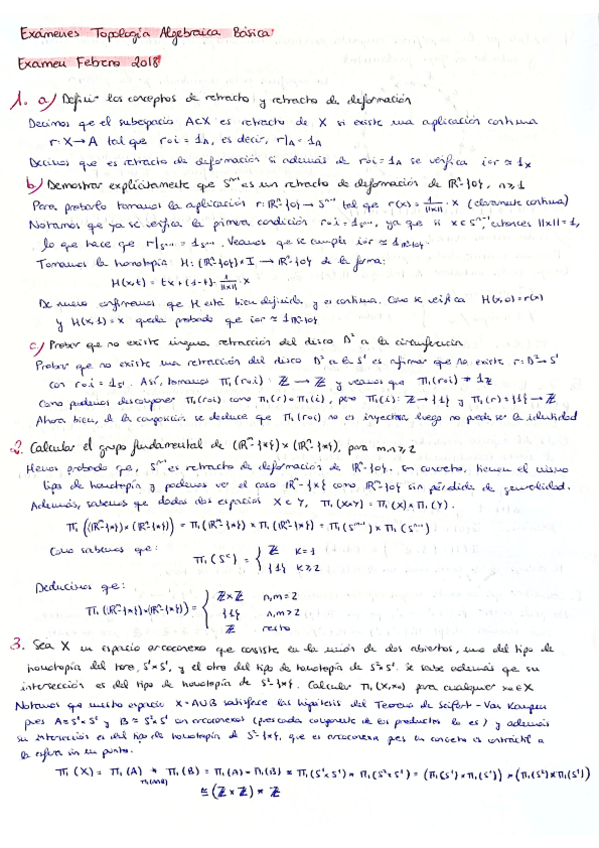 Exámenes Topología Algebraica Básica
Examen Febrero 2018
1. a) Definir los conceptos de retracto y retracto de deformación
Decimos que el subespacio A⊂X es retracto de X si existe una aplicación continua
r: X→A tal que r∘i = 1_A, es decir, r|_A = 1_A
Decimos que es retracto de deformación si además de r∘i = 1_A se verifica i∘r ≃ 1_X
b) Demostrar explícitamente que Sⁿ⁻¹ es un retracto de deformación de ℝⁿ-{0}, n≥1
Para probarlo tomamos la aplicación r: ℝⁿ-{0} → Sⁿ⁻¹ tal que r(x) = 1/||x|| · x (claramente continua)
Notamos que ya se verifica la primera condición r∘i = 1_Sⁿ⁻¹, ya que si x ∈ Sⁿ⁻¹, entonces ||x||=1,
lo que hace que r|_Sⁿ⁻¹ = 1_Sⁿ⁻¹. Veamos que se cumple i∘r ≃ 1_ℝⁿ-{0}.
Tomamos la homotopía H: (ℝⁿ-{0})×I → ℝⁿ-{0} de la forma:
H(x,t) = tx + (1-t) · 1/||x|| · x
De nuevo confirmamos que H está bien definida y es continua. Como se verifica H(x,0) = r(x)
y H(x,1) = x queda probado que i∘r ≃ 1_ℝⁿ-{0}
c) Probar que no existe ninguna retracción del disco D² a la circunferencia
Probar que no existe una retracción del disco D² a la S¹ es afirmar que no existe r: D²→S¹
con r∘i = 1_S¹. Así, tomamos π₁(r∘i): ℤ → ℤ y veamos que π₁(r∘i) ≠ 1_ℤ
Como podemos descomponer π₁(r∘i) como π₁(r)∘π₁(i), pero π₁(i): ℤ→{1} y π₁(r): {1}→ℤ
Ahora bien, de la composición se deduce que π₁(r∘i) no es inyectiva, luego no puede ser la identidad
2. Calcular el grupo fundamental de (ℝⁿ-{*})×(ℝᵐ-{*}), para m,n≥2
Hemos probado que Sⁿ⁻¹ es retracto de deformación de ℝⁿ-{0}, en concreto, tienen el mismo
tipo de homotopía y podemos ver el caso ℝⁿ-{*} como ℝⁿ-{0} sin pérdida de generalidad.
Además, sabemos que dados dos espacios X e Y, π₁(X×Y) = π₁(X)×π₁(Y).
π₁((ℝⁿ-{*})×(ℝᵐ-{*})) = π₁(ℝⁿ-{*}) × π₁(ℝᵐ-{*}) = π₁(Sⁿ⁻¹) × π₁(Sᵐ⁻¹)
Como sabemos que: π₁(Sᵏ) = { ℤ k=1
{1} k≥2
Deducimos que:
π₁((ℝⁿ-{*})×(ℝᵐ-{*})) = { ℤ×ℤ n,m=2
{1} n,m>2
ℤ resto
3. Sea X un espacio arcoconexo que consiste en la unión de dos abiertos, uno del tipo de
homotopía del toro, S¹×S¹, y el otro del tipo de homotopía de S²×S¹. Se sabe además que su
intersección es del tipo de homotopía de S²-{*}. Calcular π₁(X,x₀) para cualquier x₀∈X
Notamos que nuestro espacio X=A∪B satisface las hipótesis del Teorema de Seifert-Van Kampen
pues A≃S¹×S¹ y B≃S²×S¹ son arcoconexos (pues cada componente de los productos lo es) y además
su intersección es del tipo de homotopía de S²-{*}, que es arcoconexa pues en concreto es contráctil a
la esfera sin un punto.
π₁(X) = π₁(A) *_π₁(A∩B) π₁(B) = π₁(A) * π₁(B) ≅ π₁(S¹×S¹) * π₁(S²×S¹) = (π₁(S¹)×π₁(S¹)) * (π₁(S²)×π₁(S¹))
≅ (ℤ×ℤ) * ℤ